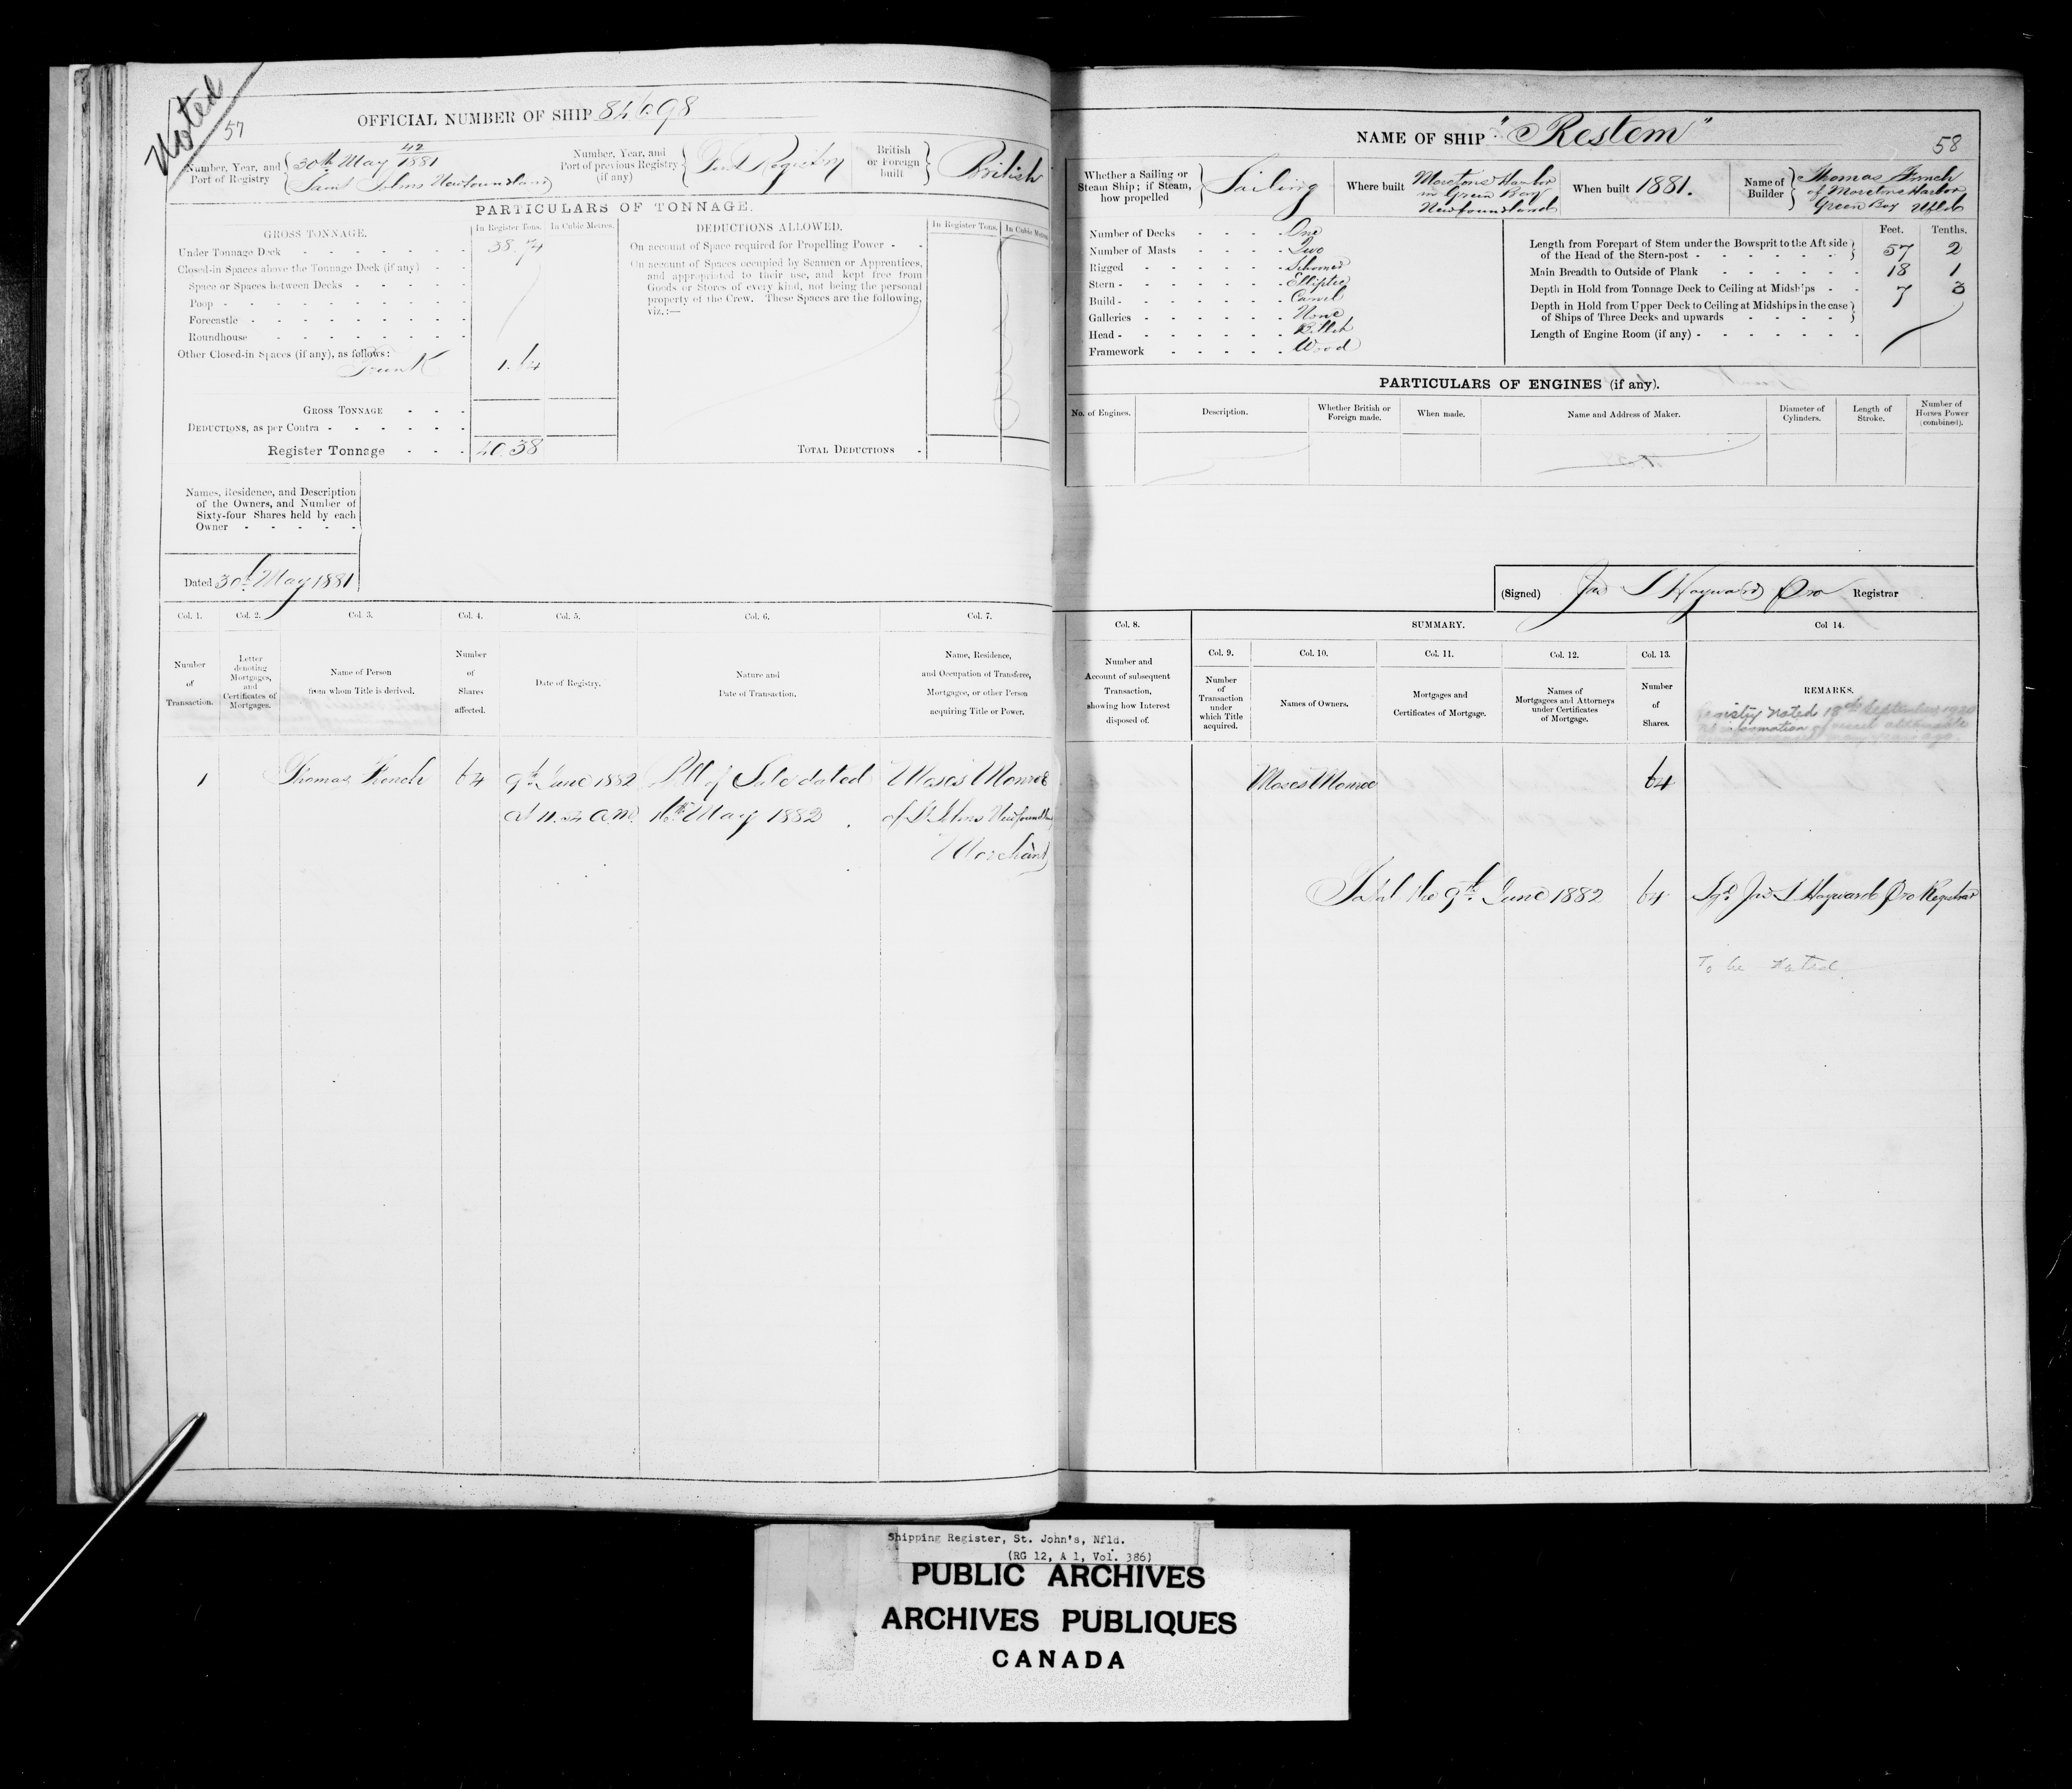 Noted
57
OFFICIAL NUMBER OF SHIP 84698
Number, Year, and Port of Registry
42
30th May 1881
Saint Johns Newfoundland
Number, Year, and Port of previous Registry (if any)
First Registry
British or Foreign built
British
PARTICULARS OF TONNAGE.
GROSS TONNAGE.
In Register Tons.
In Cubic Metres.
Under Tonnage Deck 38.74
Closed-in Spaces above the Tonnage Deck (if any)
Space or Spaces between Decks
Poop
Forecastle
Roundhouse
Other Closed-in Spaces (if any), as follows:
Trunk 1.64
GROSS TONNAGE
DEDUCTIONS, as per Contra
Register Tonnage 40.38
DEDUCTIONS ALLOWED.
In Register Tons.
In Cubic Metres.
On account of Space required for Propelling Power
On account of Spaces occupied by Seamen or Apprentices,
and appropriated to their use, and kept free from
Goods or Stores of every kind, not being the personal
property of the Crew. These Spaces are the following,
viz.:—
TOTAL DEDUCTIONS
Names, Residence, and Description
of the Owners, and Number of
Sixty-four Shares held by each
Owner
Dated 30th May 1881
Col. 1.
Col. 2.
Col. 3.
Col. 4.
Col. 5.
Col. 6.
Col. 7.
Number of Transaction.
Letter denoting Mortgages, and Certificates of Mortgages.
Name of Person from whom Title is derived.
Number of Shares affected.
Date of Registry.
Nature and Date of Transaction.
Name, Residence, and Occupation of Transferee, Mortgagee, or other Person acquiring Title or Power.
1 Thomas French 64 9th June 1882 Bill of Sale dated Moses Monroe
at 11.  a.m. 16th May 1882 of St Johns Newfoundland
Merchant
NAME OF SHIP "Restem"
58
Whether a Sailing or Steam Ship; if Steam, how propelled
Sailing
Where built
Moretons Harbor
in Green Bay
Newfoundland
When built 1881.
Name of Builder
Thomas French
of Moretons Harbor
Green Bay Nfld
Number of Decks One
Number of Masts Two
Rigged Schooner
Stern Elliptic
Build Carvel
Galleries None
Head Billet
Framework Wood
Feet. Tenths.
Length from Forepart of Stem under the Bowsprit to the Aft side
of the Head of the Stern-post 57 2
Main Breadth to Outside of Plank 18 1
Depth in Hold from Tonnage Deck to Ceiling at Midships 7 3
Depth in Hold from Upper Deck to Ceiling at Midships in the case
of Ships of Three Decks and upwards
Length of Engine Room (if any)
PARTICULARS OF ENGINES (if any).
No. of Engines.
Description.
Whether British or Foreign made.
When made.
Name and Address of Maker.
Diameter of Cylinders.
Length of Stroke.
Number of Horses Power (combined).
(Signed) Jas S Hayward Pro Registrar
Col. 8.
SUMMARY.
Col 14.
Col. 9.
Col. 10.
Col. 11.
Col. 12.
Col. 13.
Number and Account of subsequent Transaction, showing how Interest disposed of.
Number of Transaction under which Title acquired.
Names of Owners.
Mortgages and Certificates of Mortgage.
Names of Mortgagees and Attorneys under Certificates of Mortgage.
Number of Shares.
REMARKS.
Registry noted 18th September 1920
no information of vessel obtainable
many years ago.
Moses Monroe 64
Total the 9th June 1882 64 Sgd Jas S Hayward Pro Registrar
To be Noted
Shipping Register, St. John's, Nfld.
(RG 12, A 1, Vol. 386)
PUBLIC ARCHIVES
ARCHIVES PUBLIQUES
CANADA